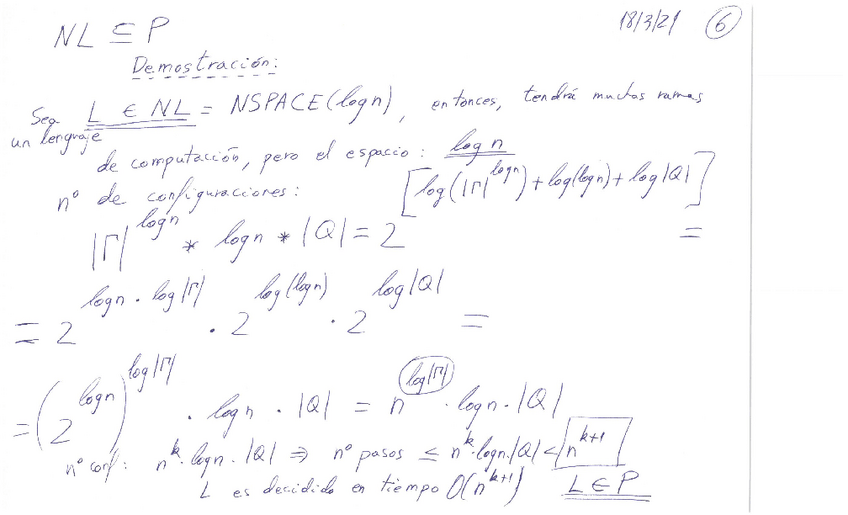 18/3/21 6
NL ⊆ P
Demostración:
Sea un lenguaje L ∈ NL = NSPACE(logn), entonces, tendrá muchas ramas
de computación, pero el espacio: log n
nº de configuraciones:
|Γ|^logn * logn * |Q| = 2^[log(|Γ|^logn) + log(logn) + log|Q|] =
= 2^(logn · log|Γ|) · 2^(log(logn)) · 2^(log|Q|) =
= (2^logn)^log|Γ| · logn · |Q| = n^(log|Γ|) · logn · |Q|
nº conf: n^k · logn · |Q| ⇒ nº pasos ≤ n^k · logn · |Q| < n^(k+1)
L es decidido en tiempo O(n^(k+1)) L ∈ P